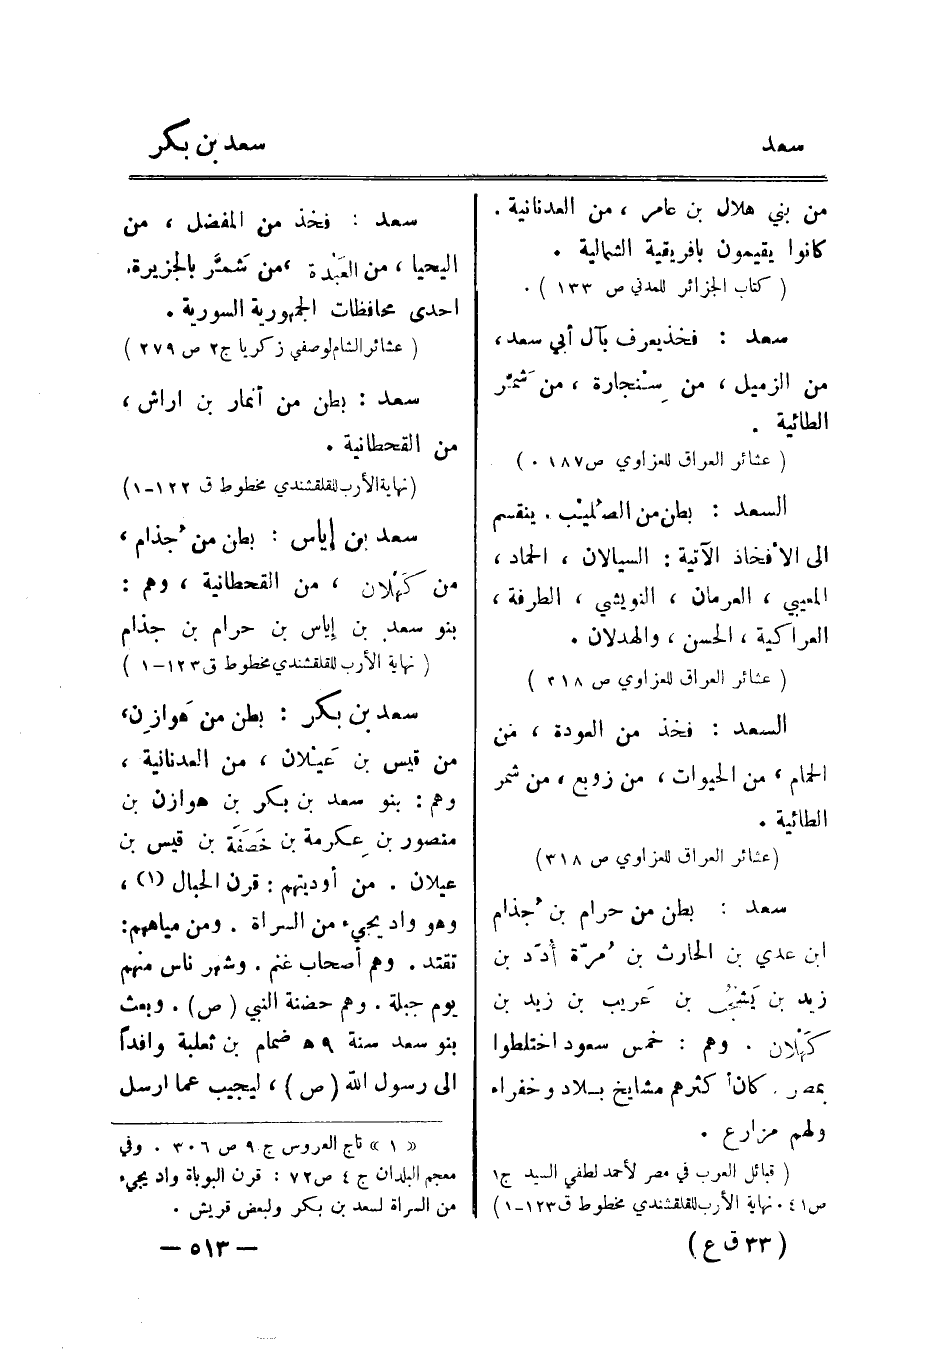 سعد
سعد بن بكر
من بني هلال بن عامر ، من العدنانية .
كانوا يقيمون بافريقية الشمالية .
( كتاب الجزائر للمدني ص ١٣٣ ) .
سعد : فخذ يعرف بآل أبي سعد ،
من الزميل ، من سِنْجارة ، من شَمَّر
الطائية .
( عشائر العراق للعزاوي ص ١٨٧ . )
السعد : بطن من الصُلَيْب . ينقسم
الى الأفخاذ الآتية : السيالان ، الحماد ،
المعيبي ، العرمان ، النويشي ، الطرفة ،
العراكية ، الحسن ، والهدلان .
( عشائر العراق للعزاوي ص ٣١٨ )
السعد : فخذ من العودة ، من
الحمام ، من الحيوات ، من زوبع ، من شمر
الطائية .
(عشائر العراق للعزاوي ص ٣١٨)
سعد : بطن من حرام بن ُجذام
ابن عدي بن الحارث بن ُمرّة أدَد بن
زيد بن يَشْجُب بن عَريب بن زيد بن
كَهْلان . وهم : خمس سعود اختلطوا
بمصر . كان أكثرهم مشايخ بلاد وخفراء
ولهم مزارع .
( قبائل العرب في مصر لأحمد لطفي السيد ج١
ص٤١ . نهاية الأرب للقلقشندي مخطوط ق١٢٣-١)
سعد : فخذ من المفضل ، من
اليحيا ، من العَبْدة ، من شَمَّر بالجزيرة .
احدى محافظات الجمهورية السورية .
( عشائر الشام لوصفي زكريا ج٢ ص ٢٧٩ )
سعد : بطن من أنمار بن اراش ،
من القحطانية .
(نهاية الأرب للقلقشندي مخطوط ق ١٢٢-١)
سعد بن إياس : بطن من ُجذام ،
من كَهْلان ، من القحطانية ، وهم :
بنو سعد بن إياس بن حرام بن جذام
( نهاية الأرب للقلقشندي مخطوط ق١٢٣-١ )
سعد بن بكر : بطن من هَوازِن ،
من قيس بن عَيْلان ، من العدنانية ،
وهم : بنو سعد بن بكر بن هوازن بن
منصور بن عِكرمة بن خَصَفَة بن قيس بن
عيلان . من أوديتهم : قرن الحبال (١) ،
وهو واد يجيء من السراة . ومن مياههم :
تقتد . وهم أصحاب غنم . وشهر ناس منهم
يوم جبلة . وهم حضنة النبي ( ص ) . وبعث
بنو سعد سنة ٩ ه ضمام بن ثعلبة وافداً
الى رسول الله ( ص ) ، ليجيب عما ارسل
« ١ » تاج العروس ج ٩ ص ٣٠٦ . وفي
معجم البلدان ج ٤ ص٧٢ : قرن البوباة واد يجيء
من السراة لسعد بن بكر ولبعض قريش .
( ٣٣ ق ع )
— ٥١٣ —